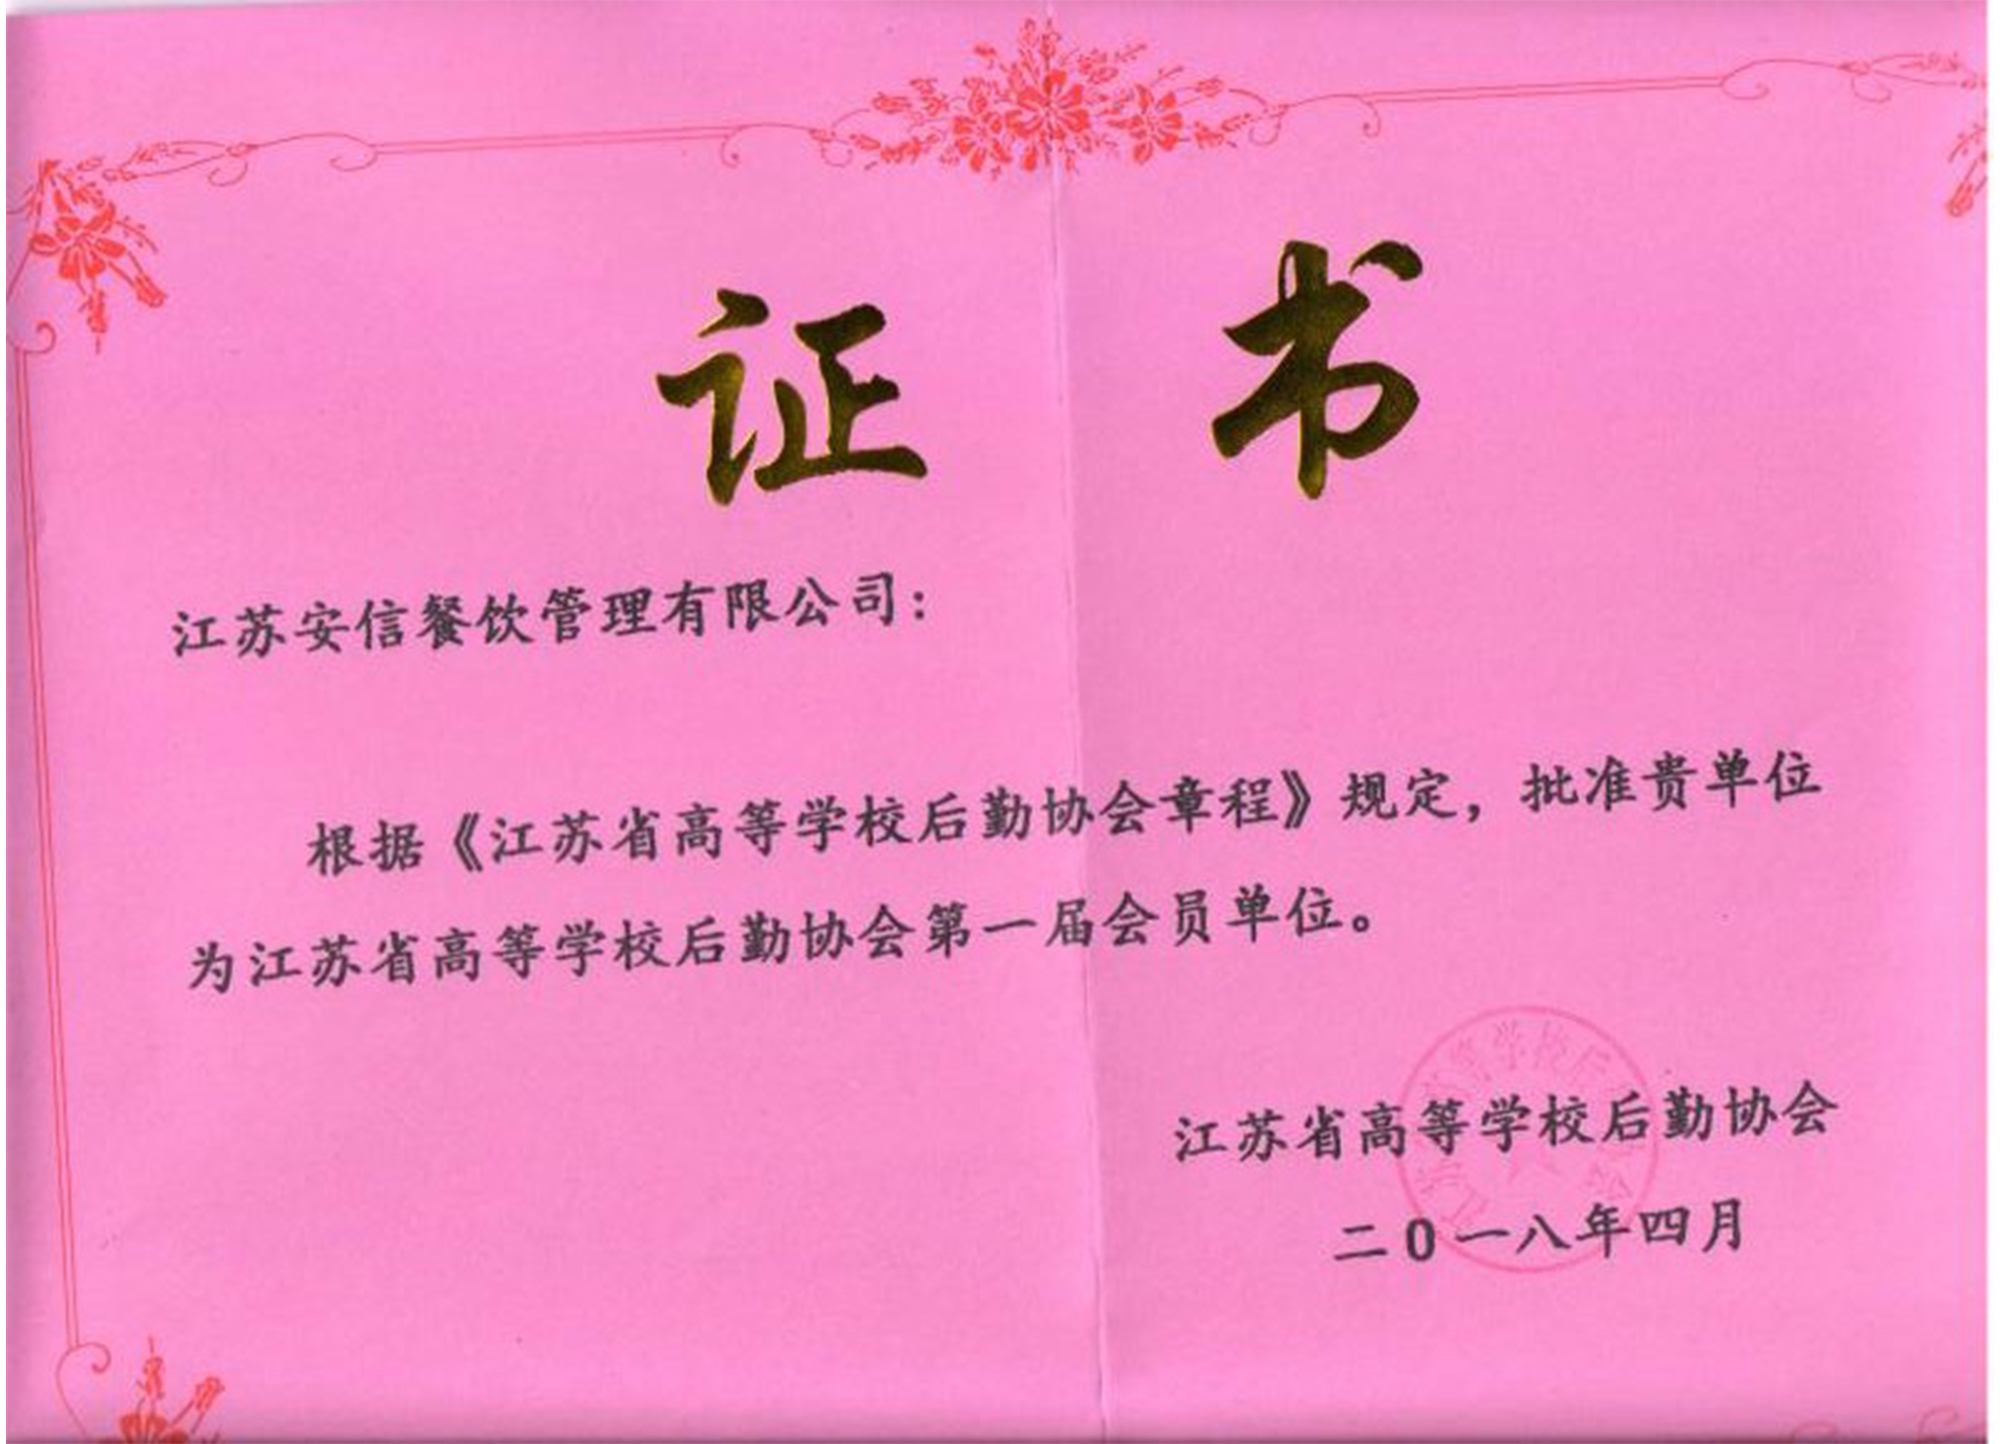 证书
江苏安信餐饮管理有限公司：
根据《江苏省高等学校后勤协会章程》规定，批准贵单位
为江苏省高等学校后勤协会第一届会员单位。
江苏省高等学校后勤协会
二0一八年四月